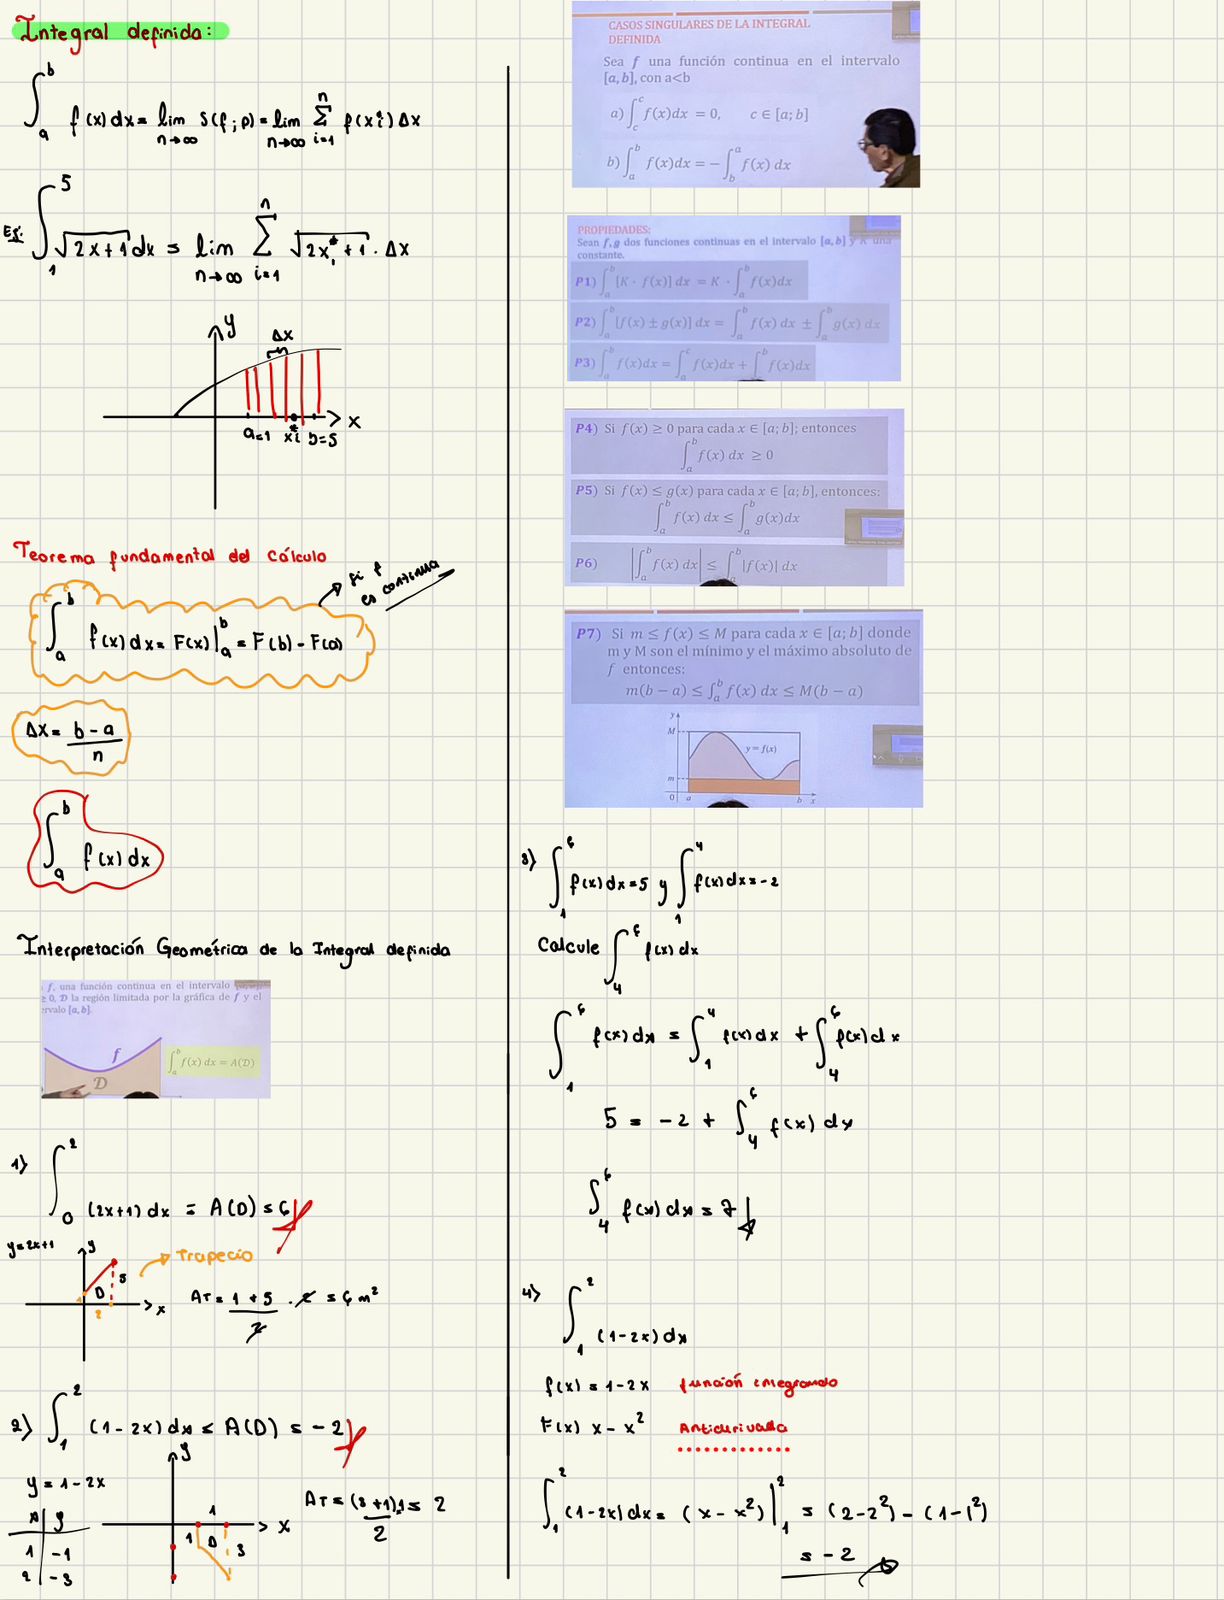 Integral definida:
∫_a^b f(x)dx = lim_{n→∞} S(f;p) = lim_{n→∞} Σ_{i=1}^n f(x_i^*) Δx
Ej: ∫_1^5 √(2x+1) dx = lim_{n→∞} Σ_{i=1}^n √(2x_i^*+1) . Δx
y
Δx
x
a=1 x_i^* b=5
Teorema fundamental del Cálculo
si f
es continua
∫_a^b f(x)dx = F(x)|_a^b = F(b) - F(a)
Δx = (b-a)/n
∫_a^b f(x)dx
Interpretación Geométrica de la Integral definida
f, una función continua en el intervalo
≥ 0, D la región limitada por la gráfica de f y el
rvalo [a, b].
f
D
∫_a^b f(x) dx = A(D)
1) ∫_0^2 (2x+1) dx = A(D) = 6
y=2x+1
y
Trapecio
D
5
1
2
x
AT = (1+5)/2 . 2 = 6 m²
2) ∫_1^2 (1-2x) dx = A(D) = -2
y = 1-2x
x y
1 -1
2 -3
y
1
x
1 D 3
AT = (3+1).1/2 = 2
CASOS SINGULARES DE LA INTEGRAL
DEFINIDA
Sea f una función continua en el intervalo
[a, b], con a<b
a) ∫_c^c f(x)dx = 0, c ∈ [a; b]
b) ∫_a^b f(x)dx = -∫_b^a f(x) dx
PROPIEDADES:
Sean f, g dos funciones continuas en el intervalo [a, b] y K una
constante.
P1) ∫_a^b [K · f(x)] dx = K · ∫_a^b f(x)dx
P2) ∫_a^b [f(x) ± g(x)] dx = ∫_a^b f(x) dx ± ∫_a^b g(x) dx
P3) ∫_a^b f(x)dx = ∫_a^c f(x)dx + ∫_c^b f(x)dx
P4) Si f(x) ≥ 0 para cada x ∈ [a; b]; entonces
∫_a^b f(x) dx ≥ 0
P5) Si f(x) ≤ g(x) para cada x ∈ [a; b], entonces:
∫_a^b f(x) dx ≤ ∫_a^b g(x)dx
P6) |∫_a^b f(x) dx| ≤ ∫_a^b |f(x)| dx
P7) Si m ≤ f(x) ≤ M para cada x ∈ [a; b] donde
m y M son el mínimo y el máximo absoluto de
f entonces:
m(b − a) ≤ ∫_a^b f(x) dx ≤ M(b − a)
y
M
y = f(x)
m
0 a b x
3) ∫_1^6 f(x)dx = 5 y ∫_1^4 f(x)dx = -2
Calcule ∫_4^6 f(x)dx
∫_1^6 f(x)dx = ∫_1^4 f(x)dx + ∫_4^6 f(x)dx
5 = -2 + ∫_4^6 f(x) dx
∫_4^6 f(x)dx = 7
4) ∫_1^2 (1-2x)dx
f(x) = 1-2x función integrando
F(x) x - x² Antiderivada
∫_1^2 (1-2x)dx = (x-x²)|_1^2 = (2-2²) - (1-1²)
= -2